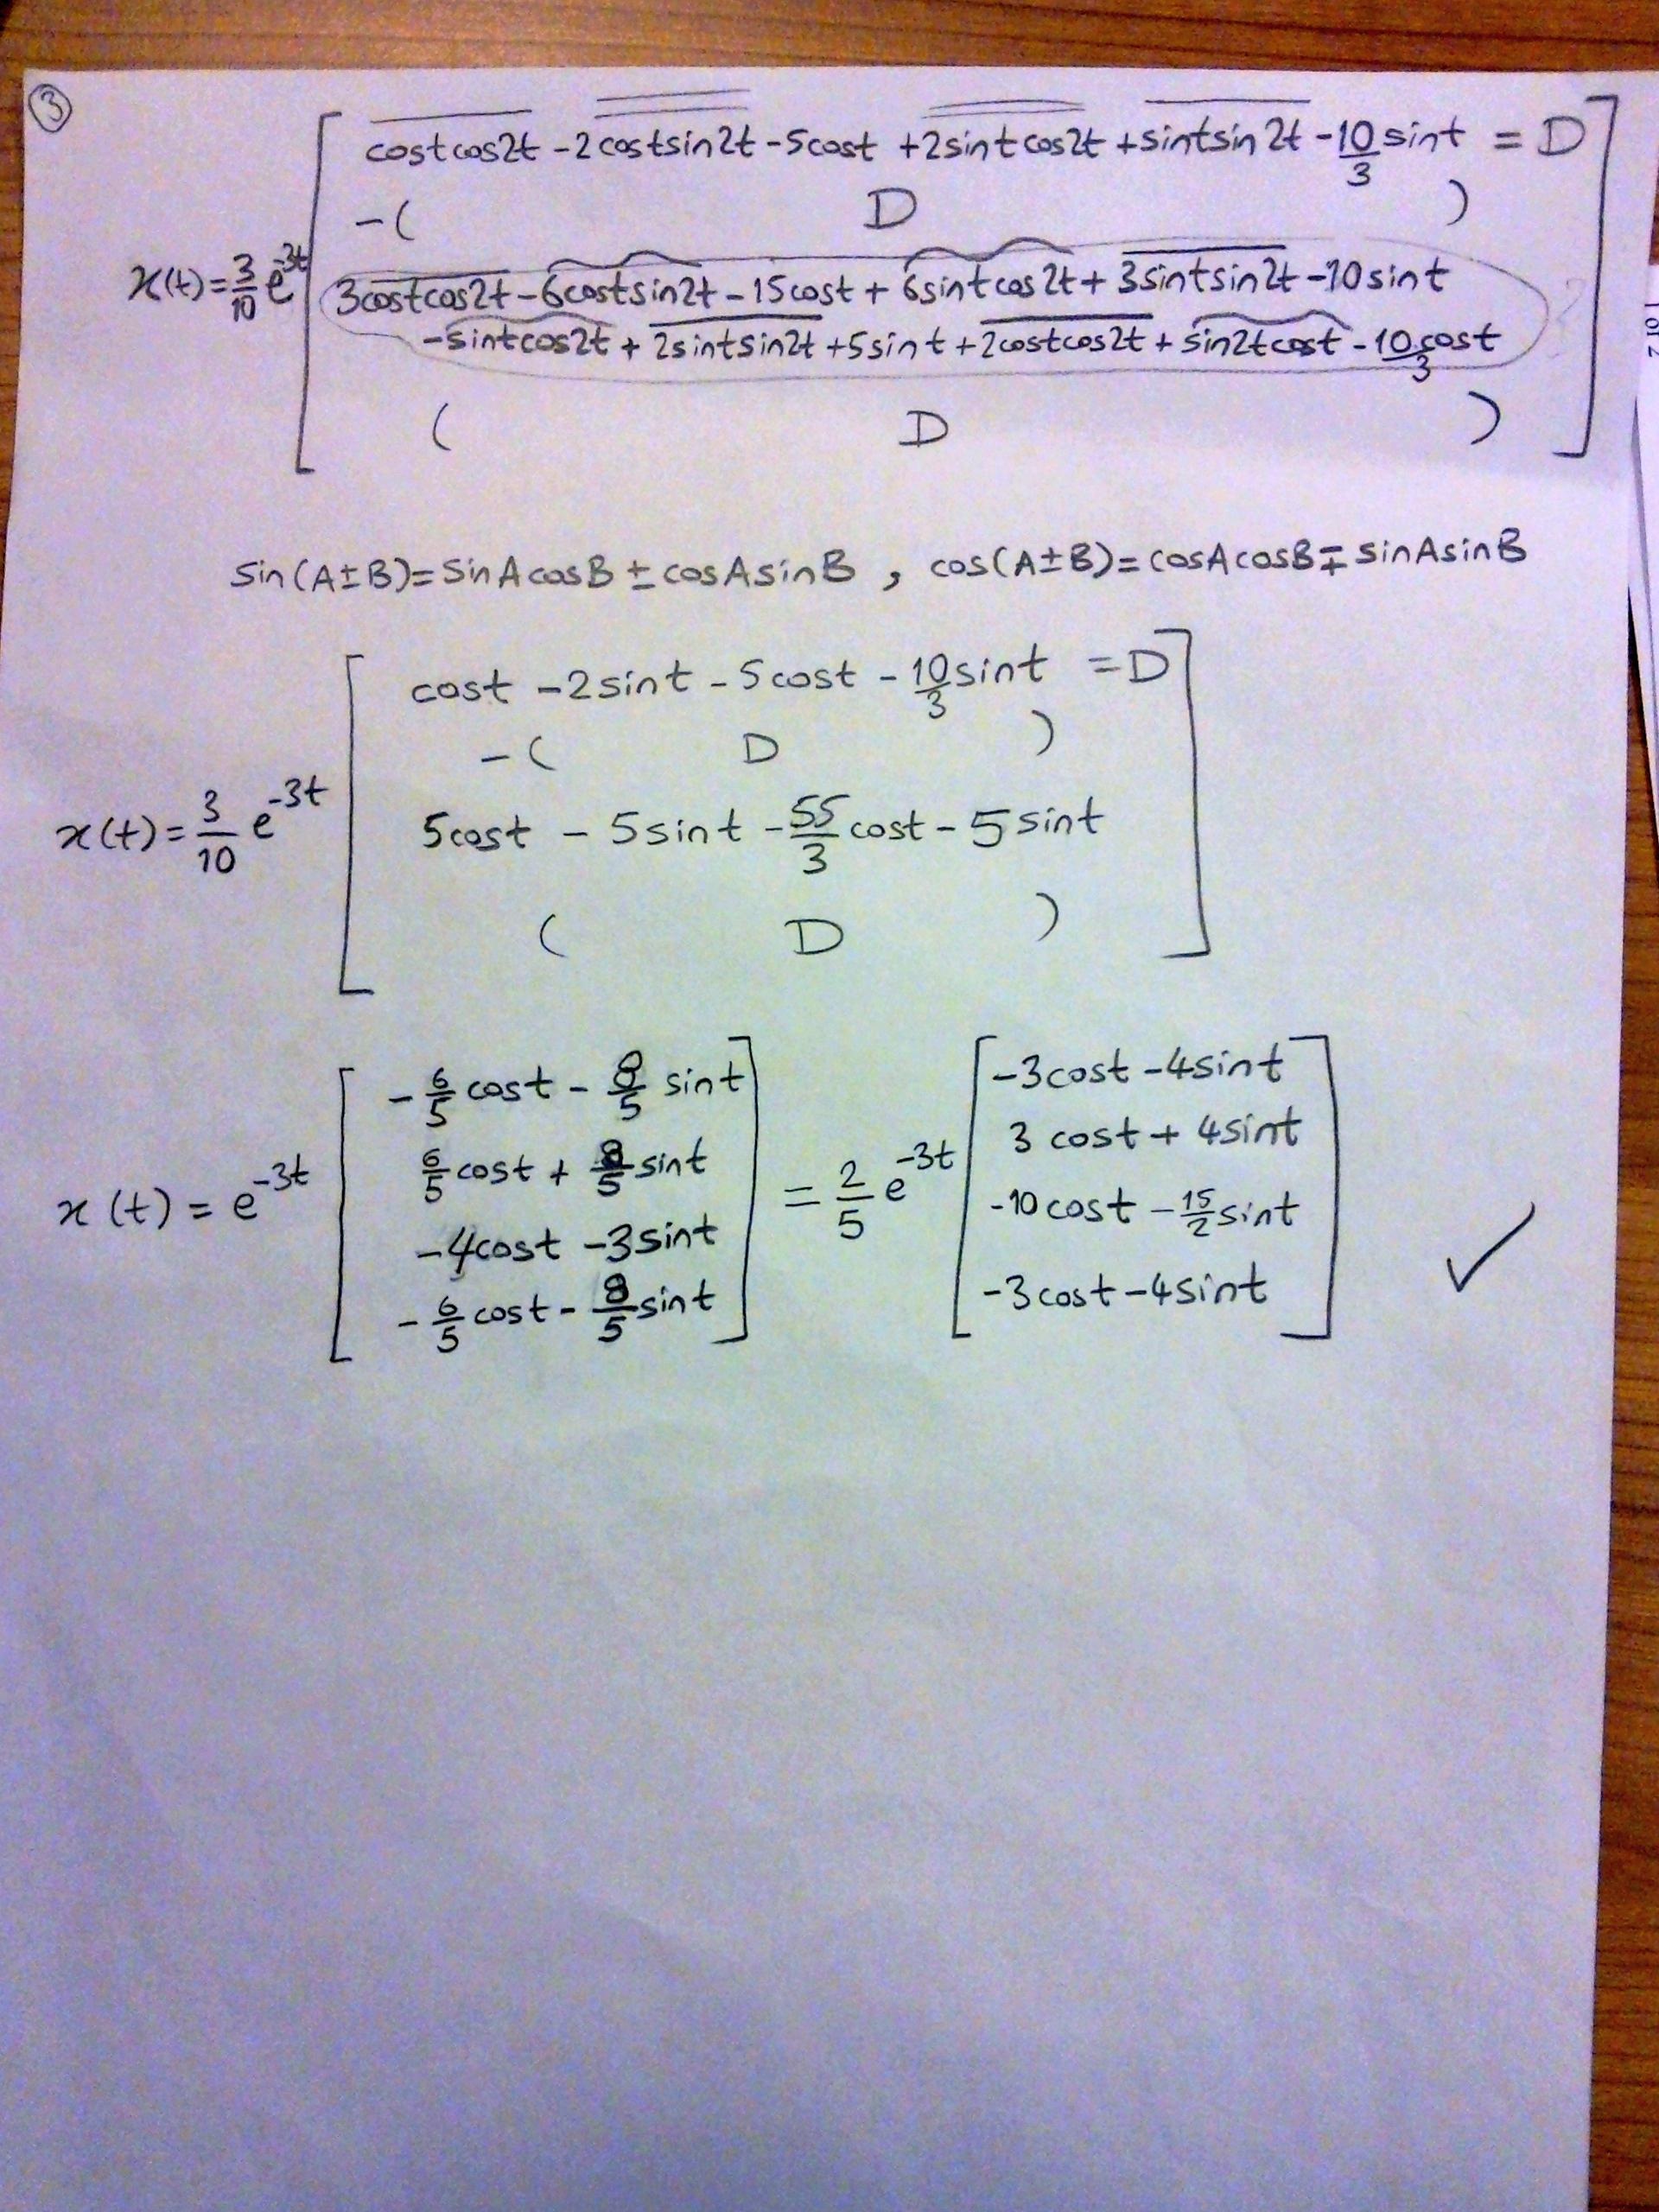 ③
costcos2t - 2costsin2t - 5cost + 2sintcos2t + sintsin2t - 10/3 sint = D
-( D )
x(t) = 3/10 e^-3t
3costcos2t - 6costsin2t - 15cost + 6sintcos2t + 3sintsin2t - 10sint
-sintcos2t + 2sintsin2t + 5sint + 2costcos2t + sin2tcost - 10/3 cost
( D )
sin(A±B) = sinAcosB ± cosAsinB , cos(A±B) = cosAcosB ∓ sinAsinB
cost - 2sint - 5cost - 10/3 sint = D
-( D )
x(t) = 3/10 e^-3t
5cost - 5sint - 55/3 cost - 5sint
( D )
-6/5 cost - 8/5 sint
6/5 cost + 8/5 sint
x(t) = e^-3t
-4cost - 3sint
-6/5 cost - 8/5 sint
-3cost - 4sint
3cost + 4sint
= 2/5 e^-3t
-10cost - 15/2 sint
-3cost - 4sint
✓